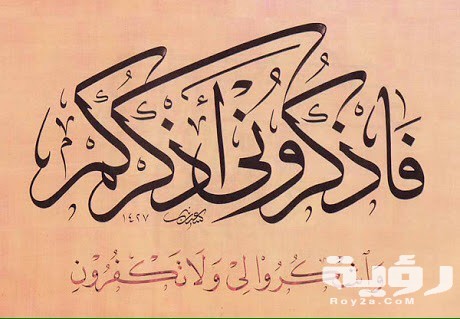 فَاذْكُرُونِي أَذْكُرْكُمْ
١٤٢٧
وَاشْكُرُوا لِي وَلَا تَكْفُرُونِ
رؤية
Roy2a.CoM